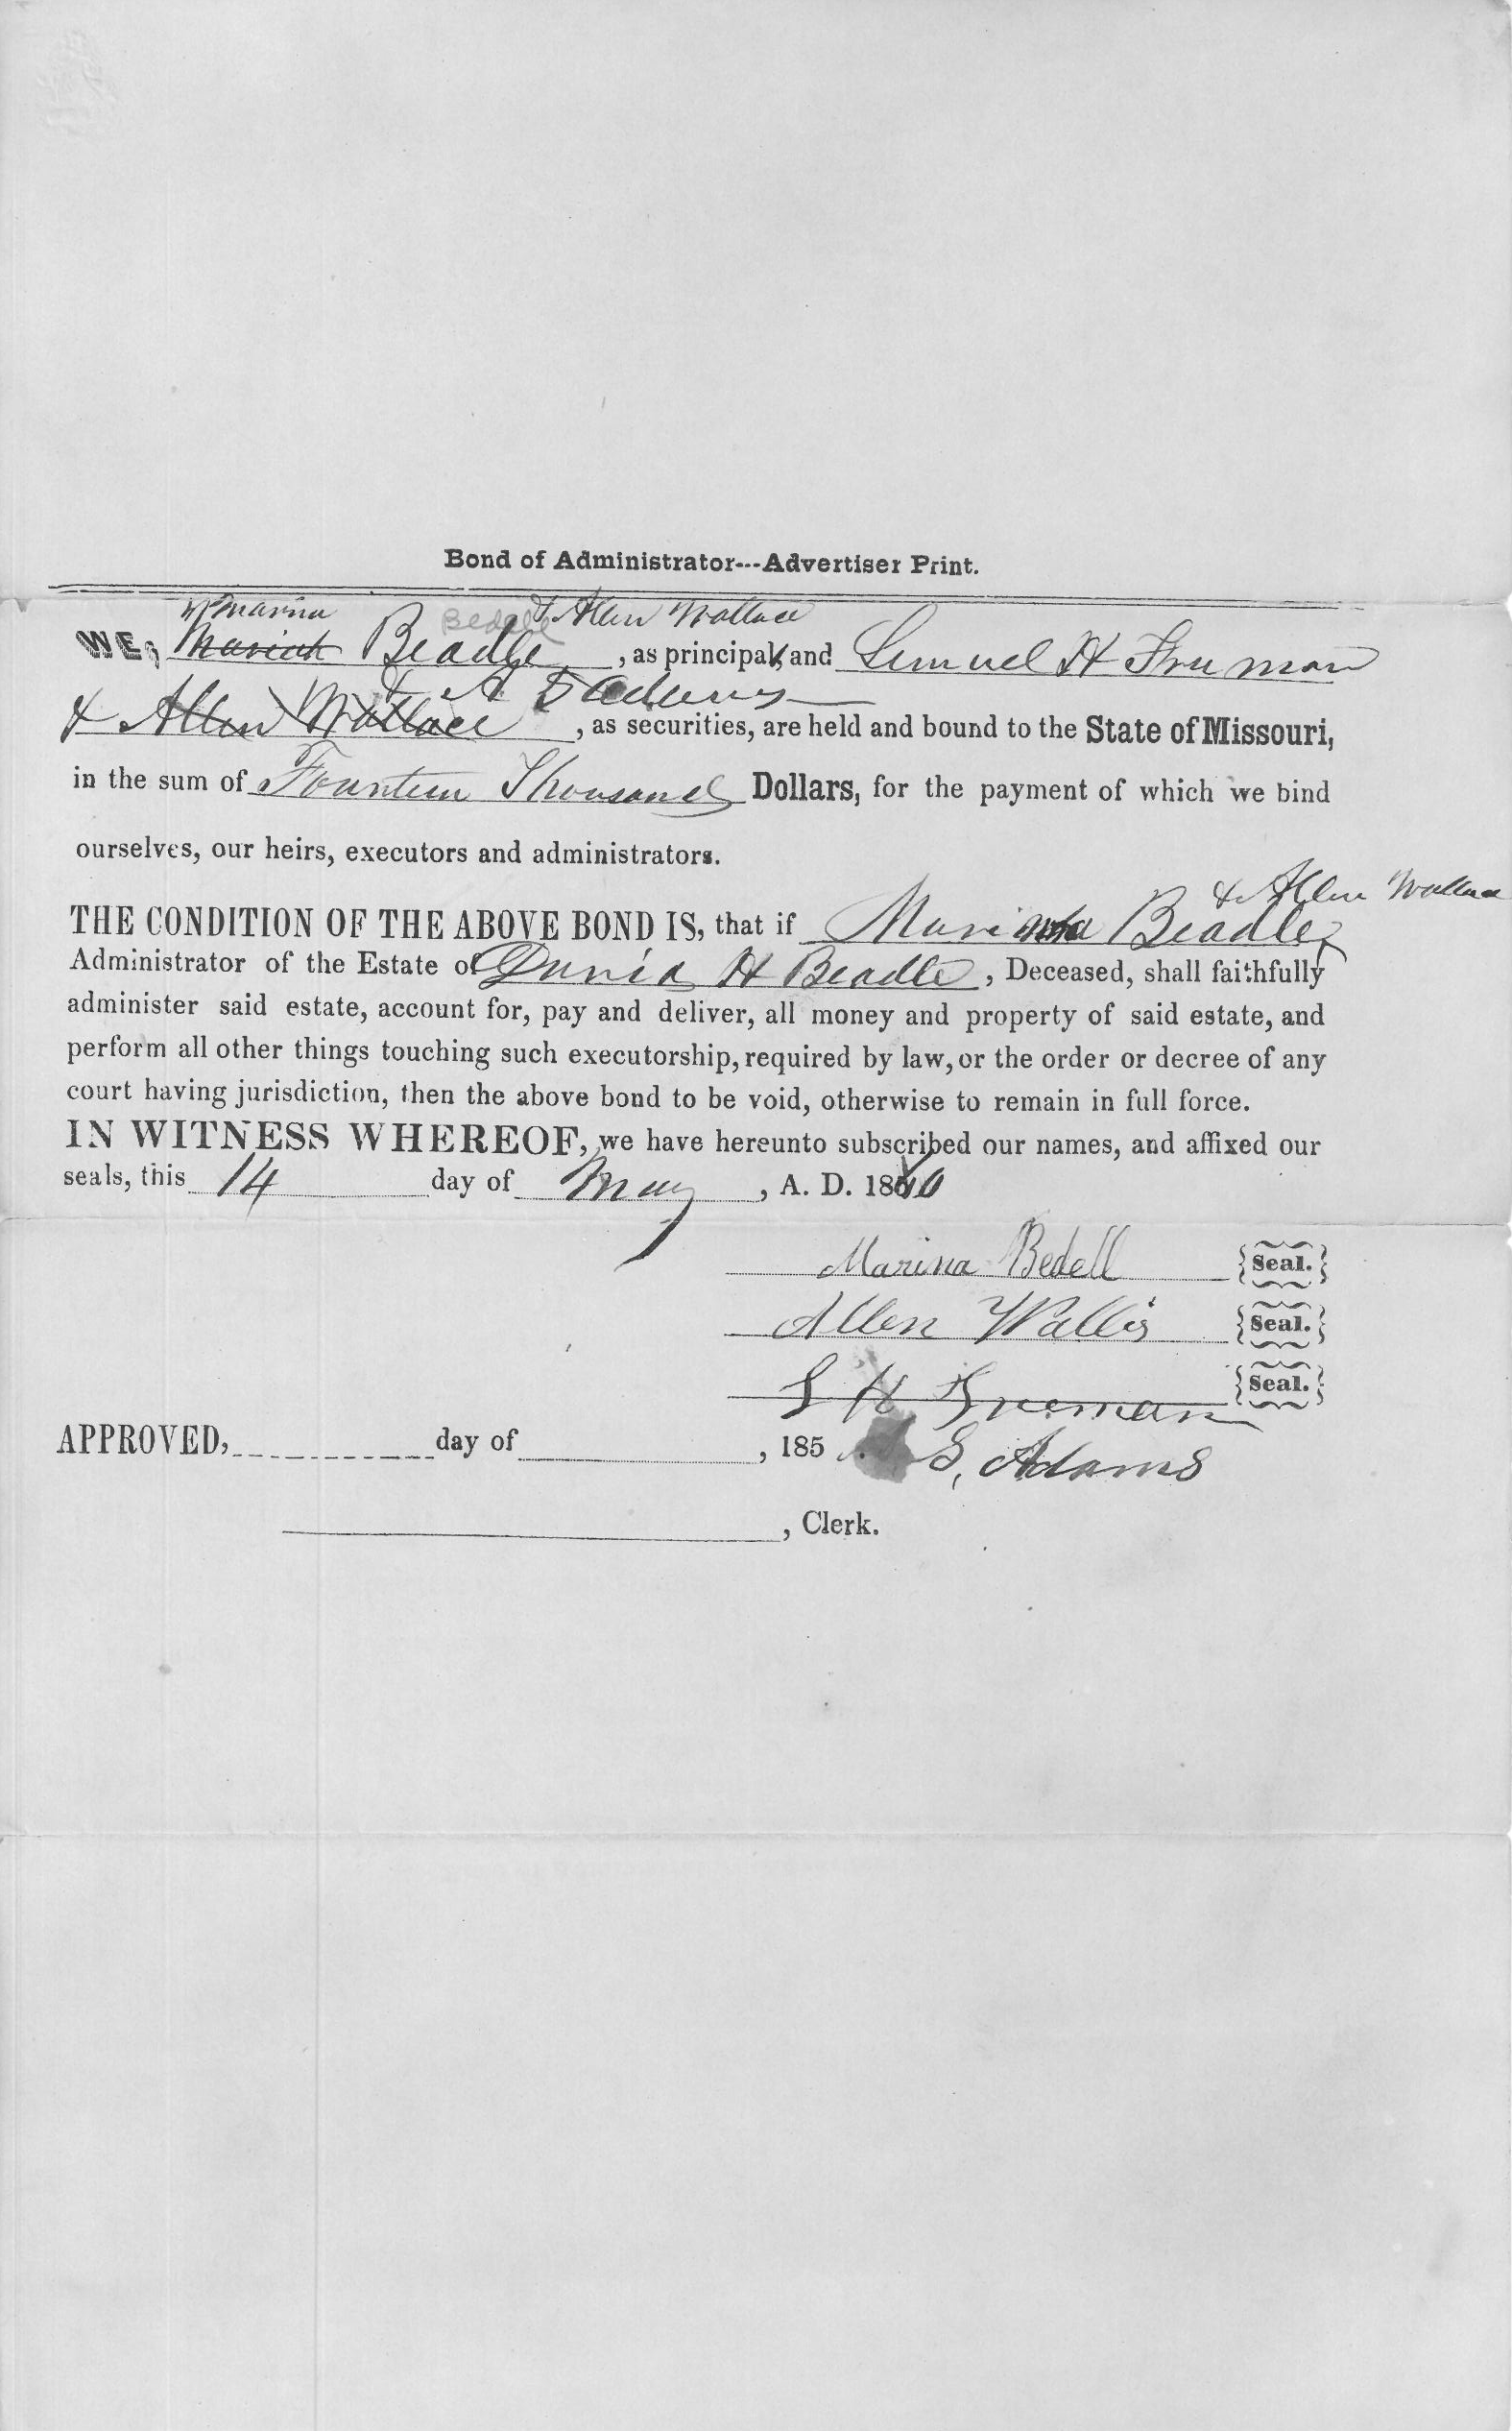 Bond of Administrator---Advertiser Print.
Marina Bedell & Allen Wallace
WE, Mariah Beadle, as principal, and Lemuel H Freeman
& A S Adams
& Allen Wallace, as securities, are held and bound to the State of Missouri,
in the sum of Fourteen Thousand Dollars, for the payment of which we bind
ourselves, our heirs, executors and administrators.
& Allen Wallace
THE CONDITION OF THE ABOVE BOND IS, that if Marina Beadle
Administrator of the Estate of David H Beadle, Deceased, shall faithfully
administer said estate, account for, pay and deliver, all money and property of said estate, and
perform all other things touching such executorship, required by law, or the order or decree of any
court having jurisdiction, then the above bond to be void, otherwise to remain in full force.
IN WITNESS WHEREOF, we have hereunto subscribed our names, and affixed our
seals, this 14 day of May, A. D. 1860
Marina Bedell {Seal.}
Allen Wallis {Seal.}
L H Freeman {Seal.}
APPROVED, day of , 185 S, Adams
, Clerk.